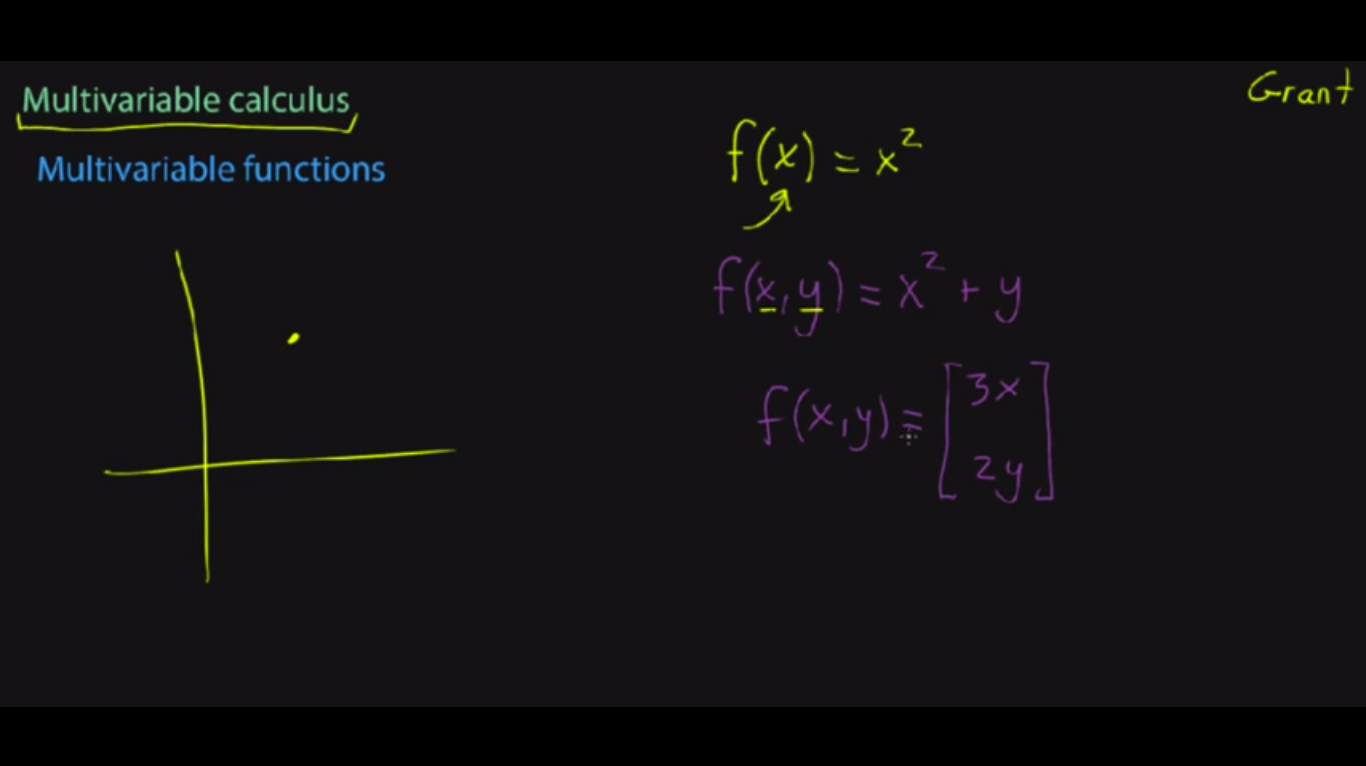 Multivariable calculus
Grant
Multivariable functions
f(x) = x²
f(x, y) = x² + y
f(x, y) = [3x
2y]